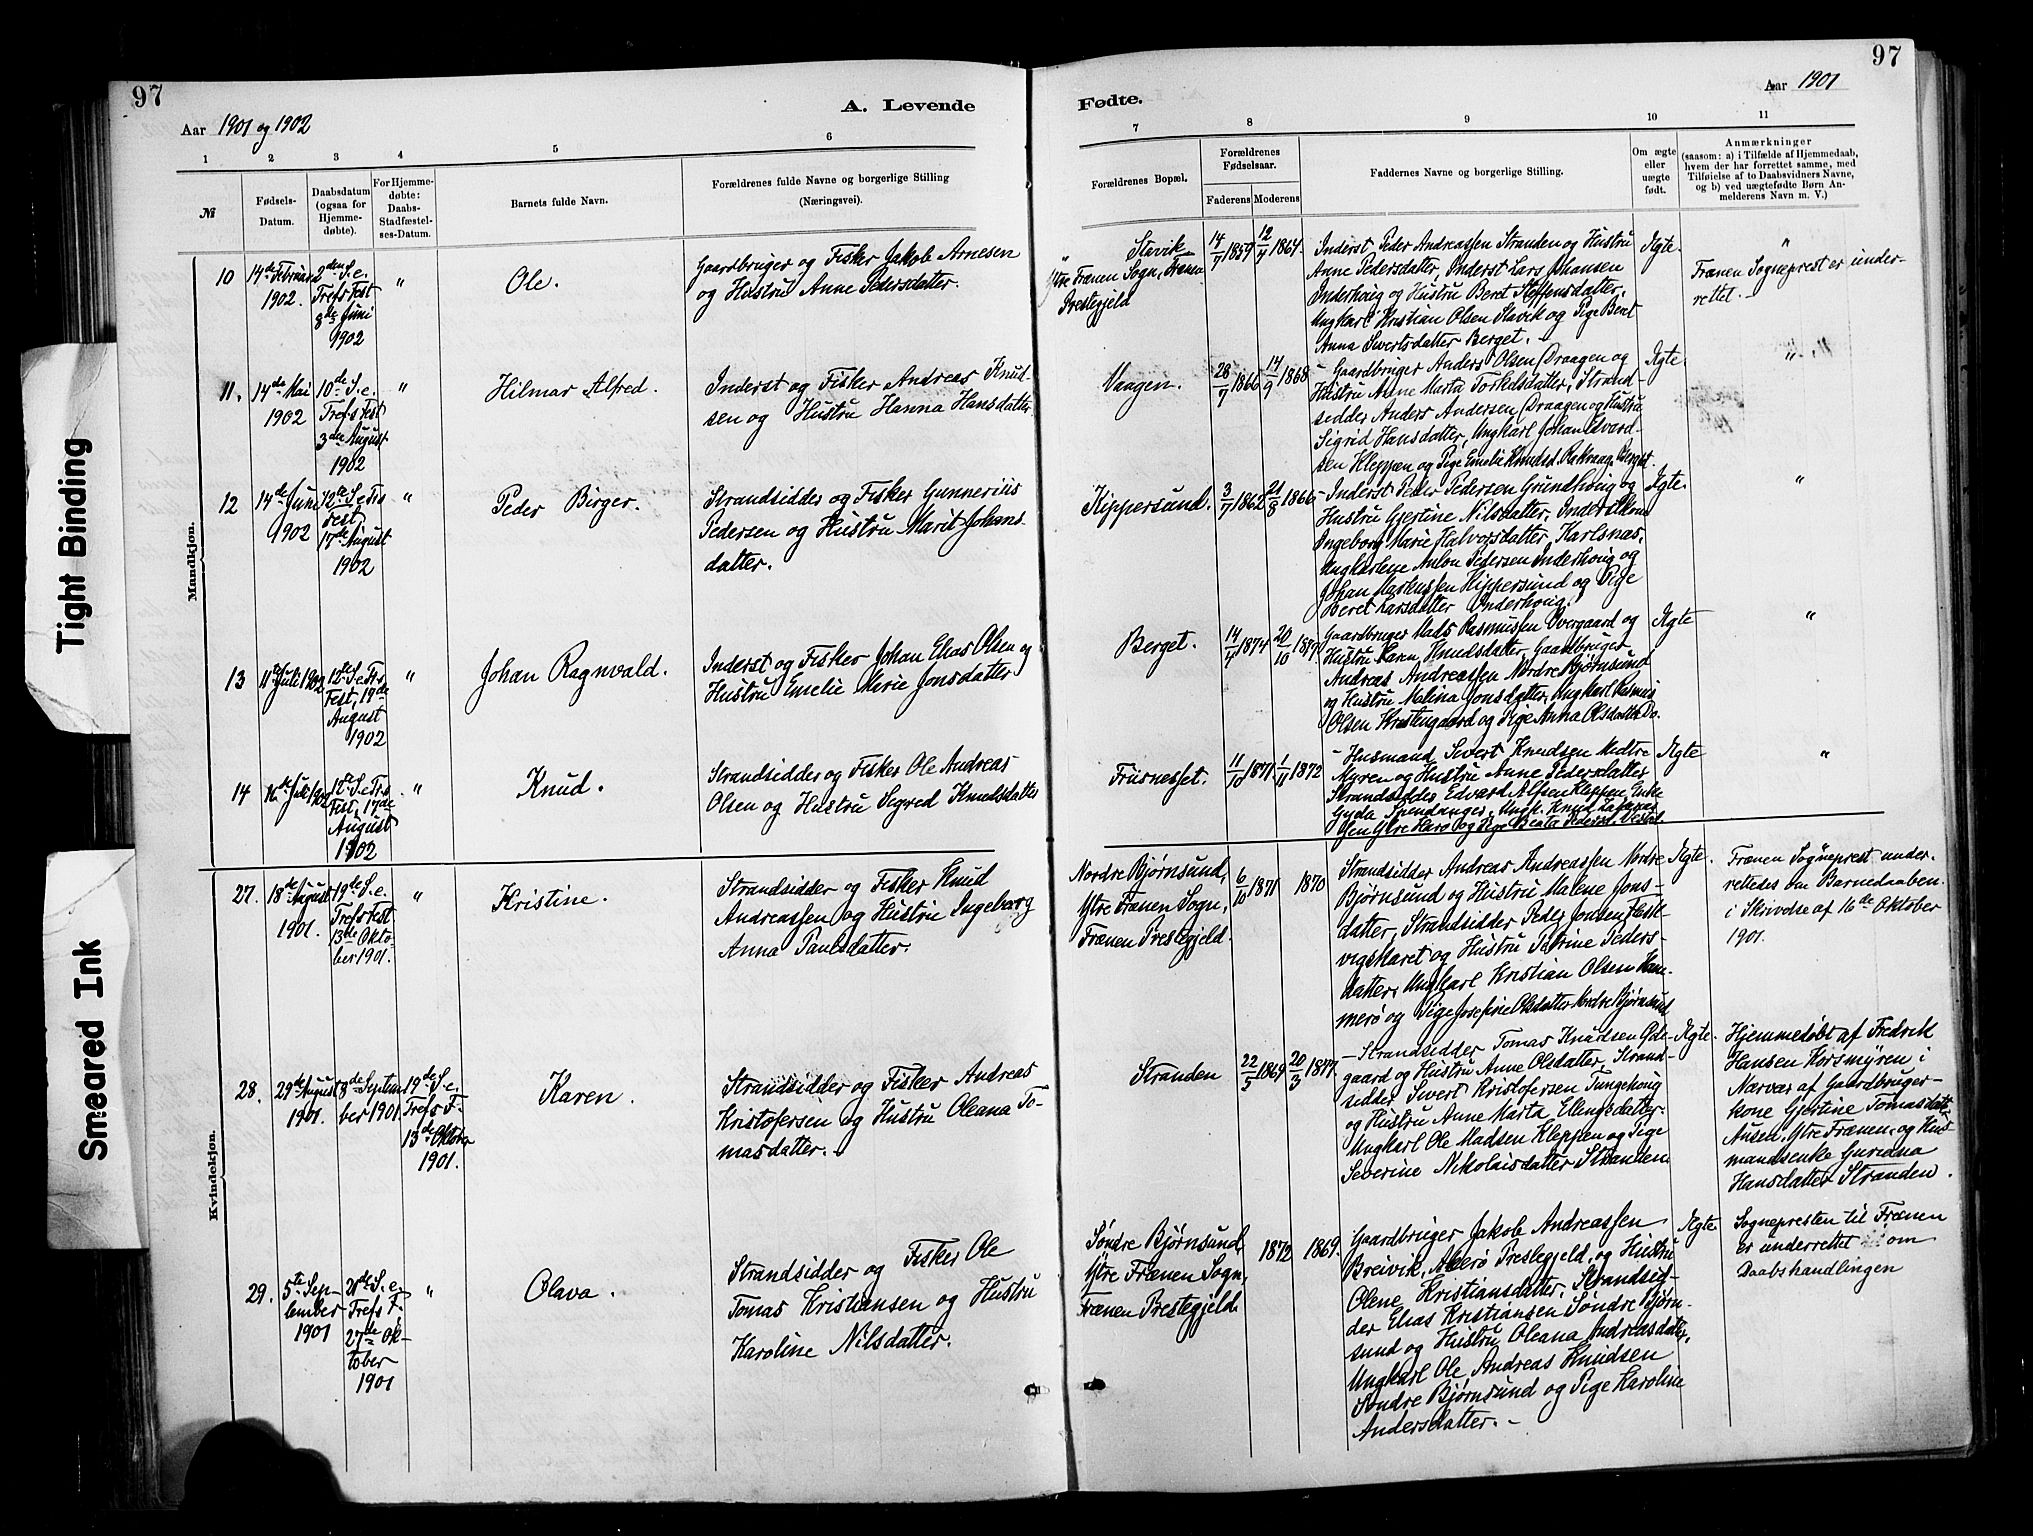 97
A. Levende
Aar 1901 og 1902
1 2 3 4 5 6
№
Fødsels-
Datum.
Daabsdatum
(ogsaa for
Hjemme-
døbte).
For Hjemme-
døbte:
Daabs-
Stadfæstel-
ses-Datum.
Barnets fulde Navn.
Forældrenes fulde Navne og borgerlige Stilling
(Næringsvei).
Mandkjøn.
10
14de Februar
1902.
2den S. e.
Trefs Fest
8de Juni
1902
"
Ole.
Gaardbruger og Fisker Jakob Arnesen
og Hustru Anne Pedersdatter.
11.
14de Mai
1902
10de S. e.
Trefs Fest
3die August
1902
"
Hilmar Alfred.
Inderst og Fisker Andreas Knud-
sen og Hustru Hanna Hansdatter
12
14de Juni
1902
12te S. e Trs
Fest
17de August
1902
"
Peder Birger.
Strandsidder og Fisker Gunnerius
Pedersen og Hustru Marit Johans-
datter.
13
11te Juli 1902
12te S. e Trs
Fest, 17de
August
1902
"
Johan Ragnvald.
Inderst og Fisker Johan Elias Olsen og
Hustru Emelie Marie Jonsdatter
14
16de Juli 1902
12te S. e Trs
Fest, 17de
August
1902
"
Knud.
Strandsidder og Fisker Ole Andreas
Olsen og Hustru Sigred Knudsdatter
Kvindekjøn.
27.
18de August
1901.
19de S. e.
Trefs Fest
13de Okto-
ber 1901.
"
Kristine.
Strandsidder og Fisker Knud
Andreassen og Hustru Ingeborg
Anna Paulsdatter.
28.
29de August
1901.
8de Septem-
ber 1901.
19de S. e.
Trefs F.
13de Oktober
1901.
Karen.
Strandsidder og Fisker Andreas
Kristofersen og Hustru Oleana To-
masdatter.
29.
5te Sep-
tember
1901
21de S. e.
Trefs F.
27de Ok-
tober
1901
"
Olava.
Strandsidder og Fisker Ole
Tomas Kristiansen og Hustru
Karoline Nilsdatter.
97
Fødte.
Aar 1901
7 8 9 10 11
Forældrenes Bopæl.
Forældrenes
Fødselsaar.
Faderens Moderens
Faddernes Navne og borgerlige Stilling.
Om ægte
eller
uægte
født.
Anmærkninger
(saasom: a) i Tilfælde af Hjemmedaab,
hvem der har forrettet samme, med
Tilføielse af to Daabsvidners Navne,
og b) ved uægtefødte Børn An-
melderens Navn m. V.)
Stavik
Ytre Frænen Sogn, Frænen
Prestegjeld
14/7 1859
12/4 1864
Inderst Peder Andreassen Stranden og Hustru
Anne Pedersdatter, Inderst Lars Johansen
Inderhoug og Hustru Beret Steffensdatter,
Ungkarl Kristian Olsen Stavik og Pige Beret
Anna Sivertsdatter Berget.
Ægte.
"
Frænen Sogneprest er under-
rettet.
Vaagen.
28/7 1866
14/9 1868
- Gaardbruger Anders Olsen Draagen og
Hustru Anne Marta Torkelsdatter, Strand-
sidder Anders Andersen Draagen og Hustru
Sigrid Hansdatter, Ungkarl Johan Edvard-
sen Kleppen og Pige Emelie Knudsd. Rakvaag, Berget.
Ægte.
"
Kippersund.
3/7 1862
21/8 1866
- Inderst Peder Pedersen Grundhoug og
Hustru Gjertine Nilsdatter, Inderstkone
Ingeborg Marie Halvorsdatter, Karlsnæs,
Ungkarlene Anton Pedersen Inderhoug og
Johan Markussen Kippersund og Pige
Beret Larsdatter Inderhoug.
Ægte.
"
Berget.
14/4 1874
20/10 1877
Gaardbruger Mads Rasmussen Overgaard og
Hustru Karen Knudsdatter, Gaardbruger
Andreas Andreassen Nordre Bjørnsund
og Hustru Malina Jonsdatter, Ungkarl Rasmus
Olsen Kristengaard og Pige Anna Olsdatter Do.
Ægte
"
Frusnesset.
11/10 1871
1/11 1872
- Husmand Sivert Knudsen Medtre
Myren og Hustru Anne Pedersdatter
Strandsidder Edvard Alfsen Kleppen, Enke
Gyda Ungk. Knud
sen Ytre Harø og Pige Beata Pedersd.
Ægte
"
Nordre Bjørnsund,
Ytre Frænen Sogn,
Frænen Prestegjeld.
6/10 1871
1870
Strandsidder Andreas Andreassen Nordre
Bjørnsund og Hustru Malene Jons-
datter, Strandsidder Peder Jonsen Hesle-
vigskaret og Hustru Petrine Peders-
datter, Ungkarl Kristian Olsen Ham-
merø og Pige Josefine Olsdatter Nordre Bjørnsund
Ægte.
Frænen Sogneprest under-
rettedes om Barnedaaben
i Skrivelse af 16de Oktober
1901.
Stranden
22/5 1869
20/3 1877
- Strandsidder Tomas Knudsen Øde-
gaard og Hustru Anne Olsdatter, Strand-
sidder Sivert Kristofersen Tungehoug
og Hustru Anne Marta Ellingsdatter.
Ungkarl Ole Madsen Kleppen og Pige
Severine Nikolaisdatter Stranden
Ægte.
Hjemmedøbt af Fredrik
Hansen Korsmyren i
Nærvær af Gaardbruger-
kone Gjertine Tomasdatter
Ausen, Ytre Frænen, og Hus-
mandsenke Gurianna
Hansdatter Stranden.
Søndre Bjørnsund,
Ytre Frænen Sogn,
Frænen Prestegjeld.
1872
1869.
Gaardbruger Jakob Andreassen
Breivik, Akerø Prestegjeld, og Hustru
Olene Kristiansdatter, Strandsid-
der Elias Kristiansen Søndre Bjørn-
sund og Hustru Oleana Andreasdatter,
Ungkarl Ole Andreas Knudsen
Søndre Bjørnsund og Pige Karoline
Andersdatter. -
Ægte
Sognepresten til Frænen
er underrettet om
Daabshandlingen
Tight Binding
Smeared Ink